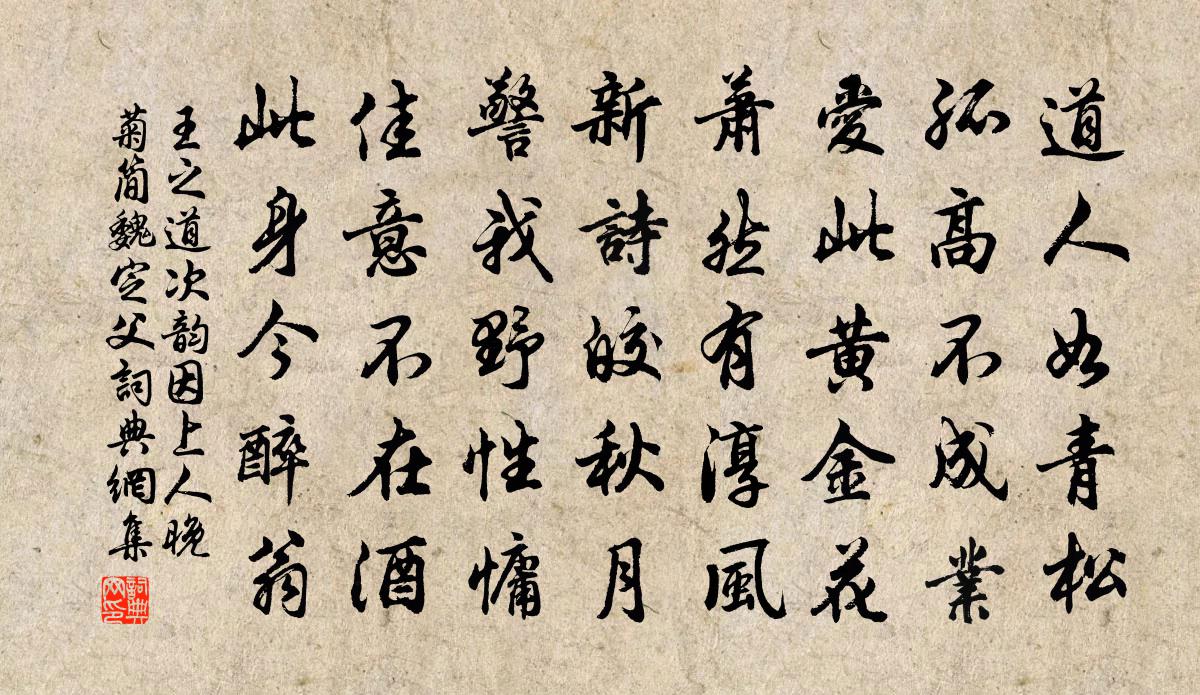 道人如青松
孤高不成業
愛此黃金花
蕭然有淳風
新詩皎秋月
警我野性慵
佳意不在酒
此身今醉翁
王之道次韵因上人晚
菊简魏定父詞典網集
詞典網印